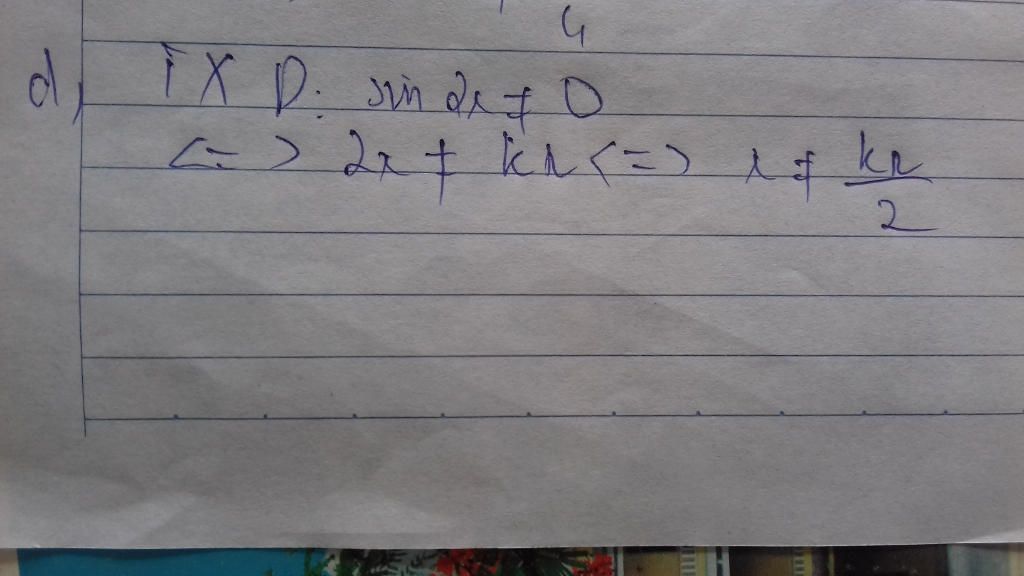 4
d, TXD: sin 2x ≠ 0
<=> 2x ≠ kπ <=> x ≠ kπ/2